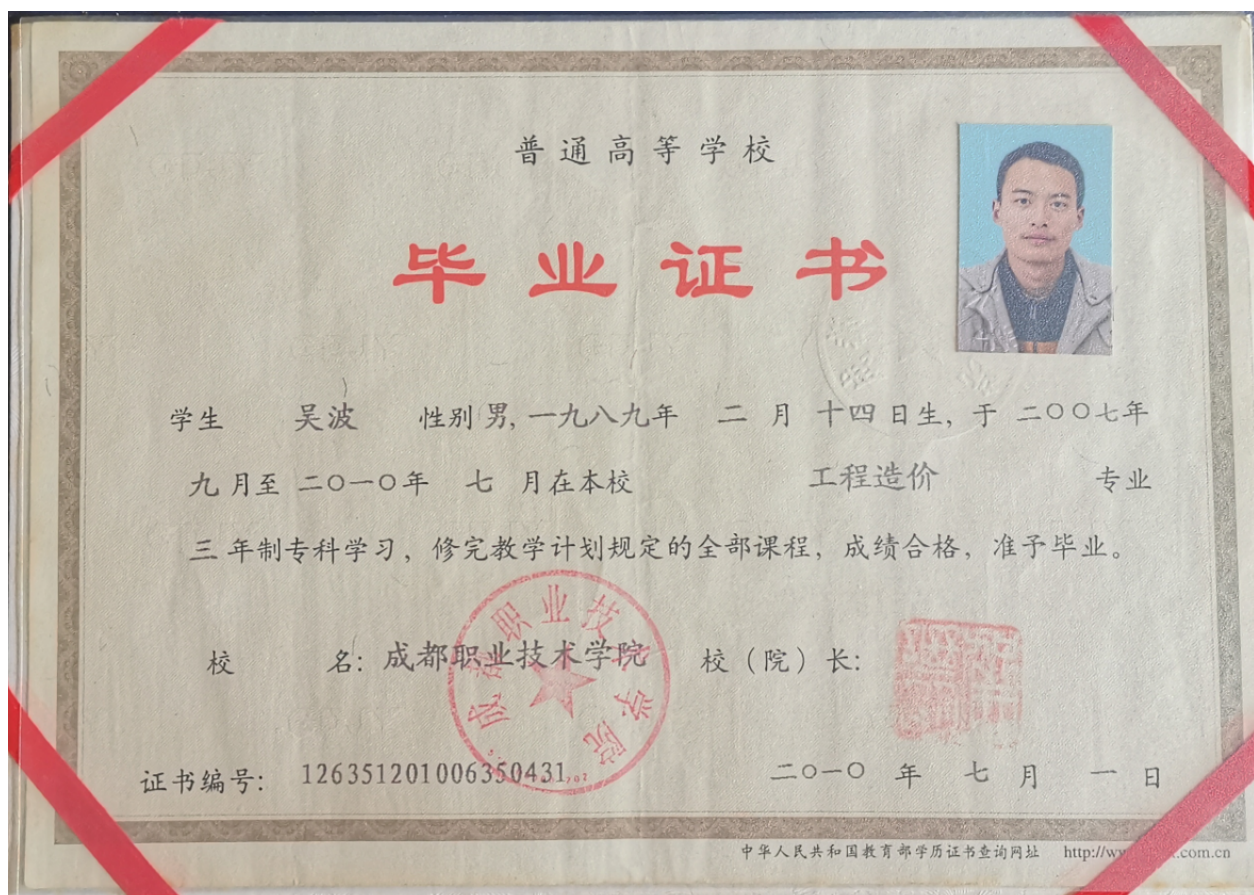 普通高等学校
毕业证书
学生 吴波 性别 男, 一九八九年 二 月 十四 日生, 于 二〇〇七年
九 月至 二〇一〇年 七 月在本校 工程造价 专业
三 年制专科学习, 修完教学计划规定的全部课程, 成绩合格, 准予毕业。
校 名: 成都职业技术学院 校(院)长:
成都职业技术学院
证书编号: 126351201006350431 二〇一〇 年 七 月 一 日
中华人民共和国教育部学历证书查询网址 http://ww .com.cn